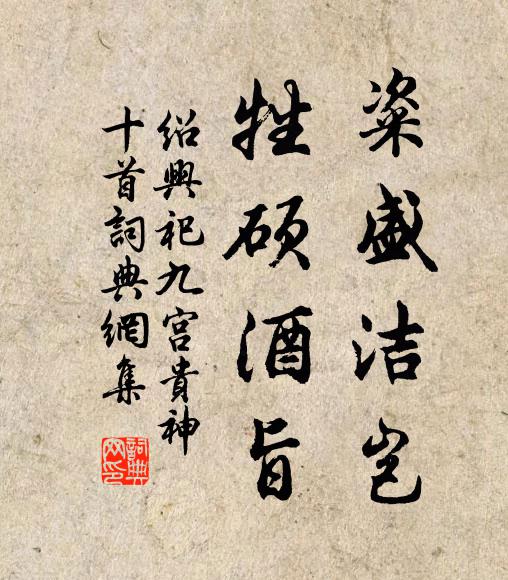 粢盛洁岂
牲硕酒旨
绍興祀九宫貴神
十首詞典網集
詞典
网印